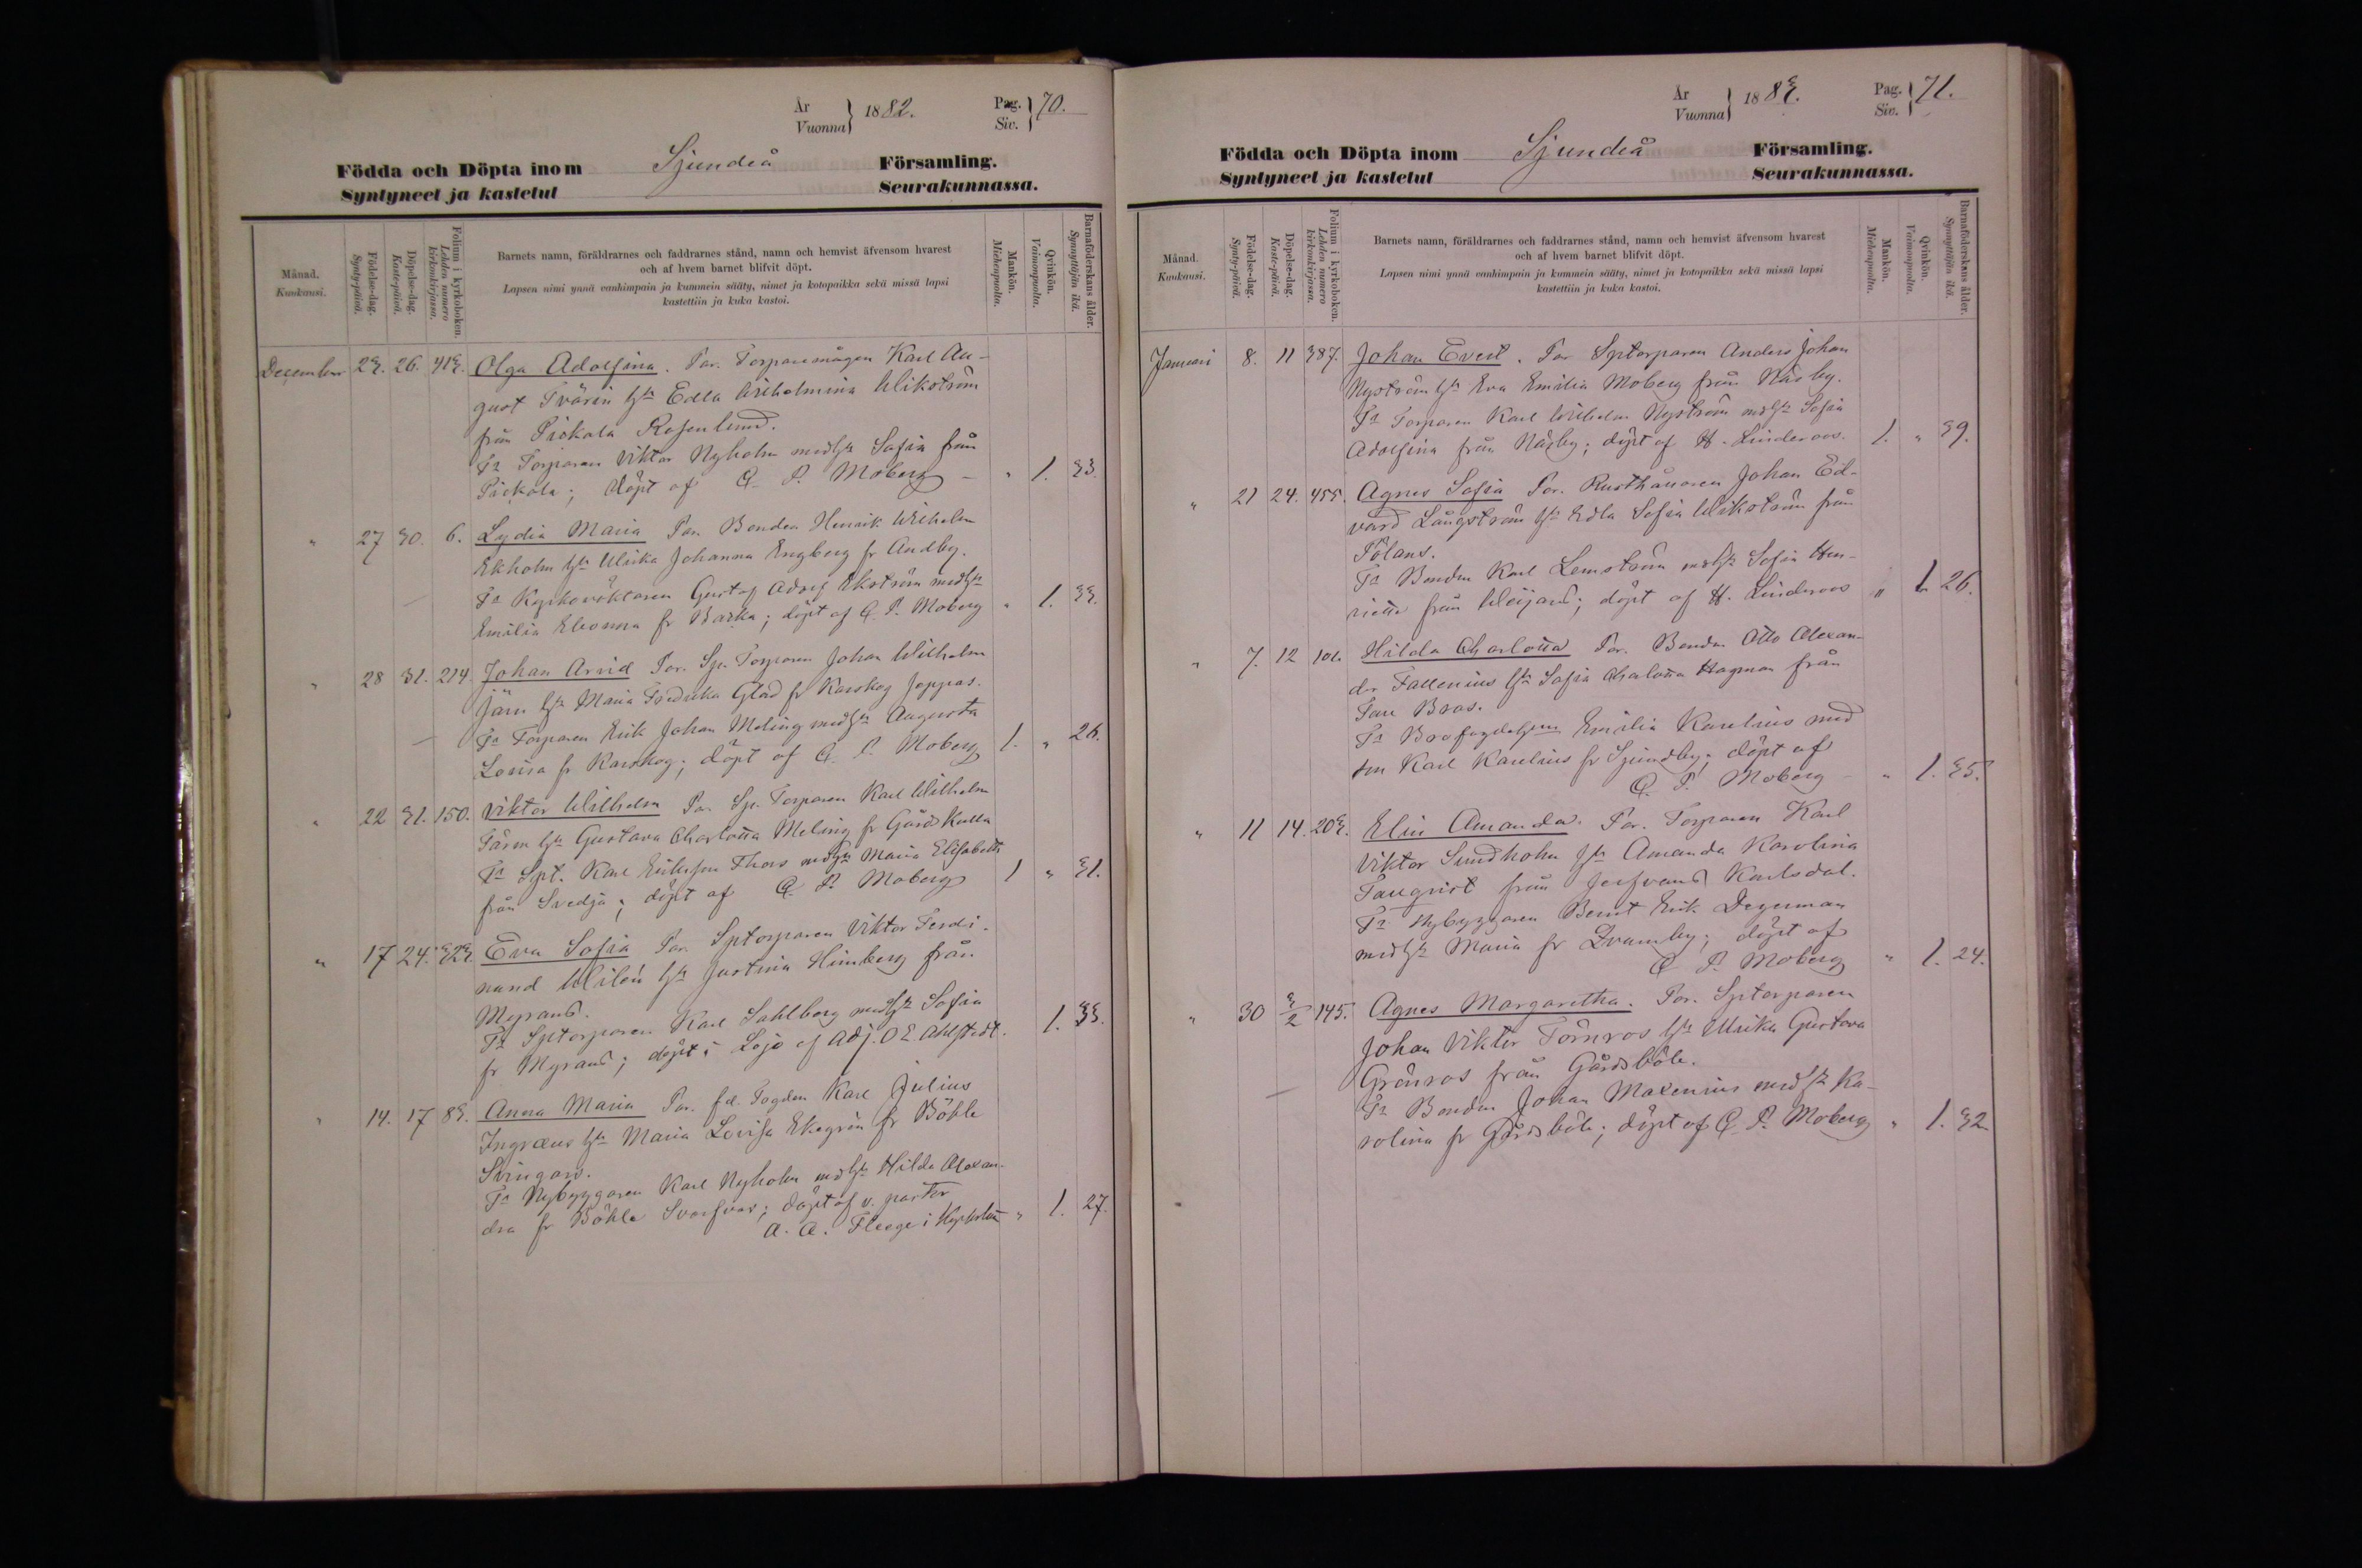 År
Vuonna
1882.
Pag.
Siv.
70.
Födda och Döpta inom Sjundeå Församling.
Syntyneet ja kastetut Seurakunnassa.
Månad.
Kuukausi.
Födelse-dag.
Synty-päivä.
Döpelse-dag.
Kaste-päivä.
Folium i kyrkoboken.
Lehden numero
kirkonkirjassa.
Barnets namn, föräldrarnes och faddrarnes stånd, namn och hemvist äfvensom hvarest
och af hvem barnet blifvit döpt.
Lapsen nimi ynnä vanhimpain ja kummein sääty, nimet ja kotopaikka sekä missä lapsi
kastettiin ja kuka kastoi.
Mankön.
Miehenpuolta.
Qvinkön.
Vaimonpuolta.
Barnaföderskans ålder.
Synnyttäjän ikä.
December 23. 26. 413. Olga Adolfina. Par. Torparemågen Karl Au-
gust Tvärin hst Edla Wilhelmina Wikström
från Pickala Rosenlund.
Fr Torparen Viktor Nyholm med hst Sofia från
Pickala; döpt af C. P. Moberg - " 1. 33.
" 27 30. 6. Lydia Maria Par. Bonden Henrik Wilhelm
Ekholm hst Ulrika Johanna Engberg fr Andby.
Fr Kyrkoväktaren Gustaf Adolf Ekström med hst
Emilia Eleonora fr Backa; döpt af C. P. Moberg " 1. 33.
" 28 31. 214. Johan Arvid Par. Sp. Torparen Johan Wilhelm
Järn hst Maria Fredrika Glad fr Karskog Joppas.
Fr Torparen Erik Johan Meling med hst Augusta
Lovisa fr Karskog; döpt af C. P. Moberg 1. " 26.
" 22 31. 150. Viktor Wilhelm Par. Sp. Torparen Karl Wilhelm
Färm hst Gustava Charlotta Meling fr Gårdskulla
Fr Spt. Karl Eriksson Thors med hst Maria Elisabeth
från Svedja; döpt af C. P. Moberg 1 " 31.
" 17 24. 323. Eva Sofia Par. Sptorparen Viktor Ferdi-
nand Wilén hst Justina Himberg från
Myrans.
Fr Sptorparen Karl Sahlberg med hst Sofia
fr Myrans; döpt i Lojo af Adj. O E. Ahlstedt. 1. 33.
" 14. 17 83. Anna Maria Par. fd. Fogden Karl Julius
Ingraeus hst Maria Lovisa Ekegrén fr Böhle
Svingars.
Fr Nybyggaren Karl Nyholm med hst Hilda Alexan-
dra fr Böhle Svarfvar; döpt af v. pastor
A. A. Fleege i Kyrkslätt " 1. 27.
År
Vuonna
1883.
Pag.
Siv.
71.
Födda och Döpta inom Sjundeå Församling.
Syntyneet ja kastetut Seurakunnassa.
Månad.
Kuukausi.
Födelse-dag.
Synty-päivä.
Döpelse-dag.
Kaste-päivä.
Folium i kyrkoboken.
Lehden numero
kirkonkirjassa.
Barnets namn, föräldrarnes och faddrarnes stånd, namn och hemvist äfvensom hvarest
och af hvem barnet blifvit döpt.
Lapsen nimi ynnä vanhimpain ja kummein sääty, nimet ja kotopaikka sekä missä lapsi
kastettiin ja kuka kastoi.
Mankön.
Miehenpuolta.
Qvinkön.
Vaimonpuolta.
Barnaföderskans ålder.
Synnyttäjän ikä.
Januari 8. 11 387. Johan Evert. Par Sptorparen Anders Johan
Nyström hst Eva Emilia Moberg från Näsby.
Fr Torparen Karl Wilhelm Nyström med hst Sofia
Adolfina från Näsby; döpt af H. Linderoos. 1. " 39.
" 21 24. 455. Agnes Sofia Par. Rusthållaren Johan Ed-
vard Långström hst Edla Sofia Wikström från
Pölans.
Fr Bonden Karl Lemström med hst Sofia Hen-
riette från Weijars; döpt af H. Linderoos " 1. 26.
" 7. 12 101. Hilda Charlotta Par. Bonden Otto Alexan-
der Fallenius hst Sofia Charlotta Hagman från
Tare Bras.
Fr Brofogdehjon Emilia Karelius med
son Karl Karelius fr Sjundby; döpt af
C. P. Moberg - " 1. 35.
" 11 14. 203. Elin Amanda. Par. Torparen Karl
Viktor Sundholm hst Amanda Karolina
Tauqvist från Jerfvans Karlsdal.
Fr Nybyggaren Bernt Erik Degerman
med hst Maria fr Qvarnby; döpt af
C P. Moberg " 1. 24.
" 30 3/2 145. Agnes Margaretha. Par. Sptorparen
Johan Viktor Törnros hst Ulrika Gustava
Grönros från Gårdsböle.
Fr Bonden Johan Maxenius med hst Ka-
rolina fr Gårdsböle; döpt af C. P. Moberg " 1. 32